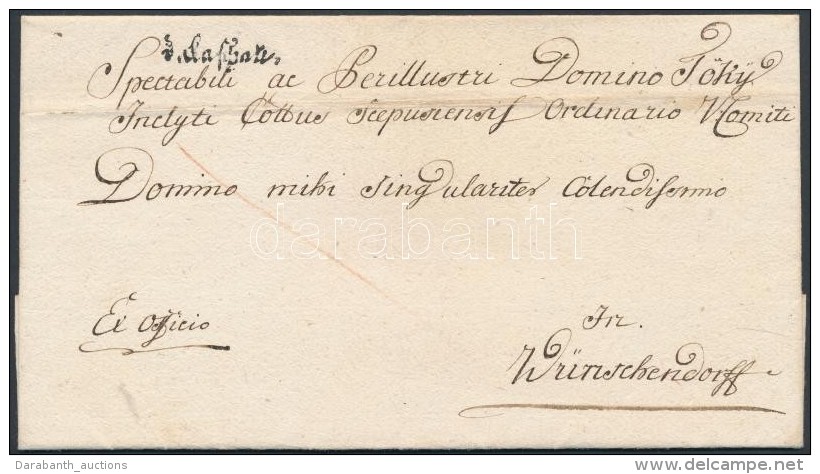 v. Caschau.
Spectabili ac Perillustri Domino Jöký
Inclyti Cottus Scepusiensis Ordinario VComiti
Domino mihi singulariter Colendissimo
Ex Officio
In.
Wünschendorff
darabanth
Darabanth_auctions
www.delcampe.net